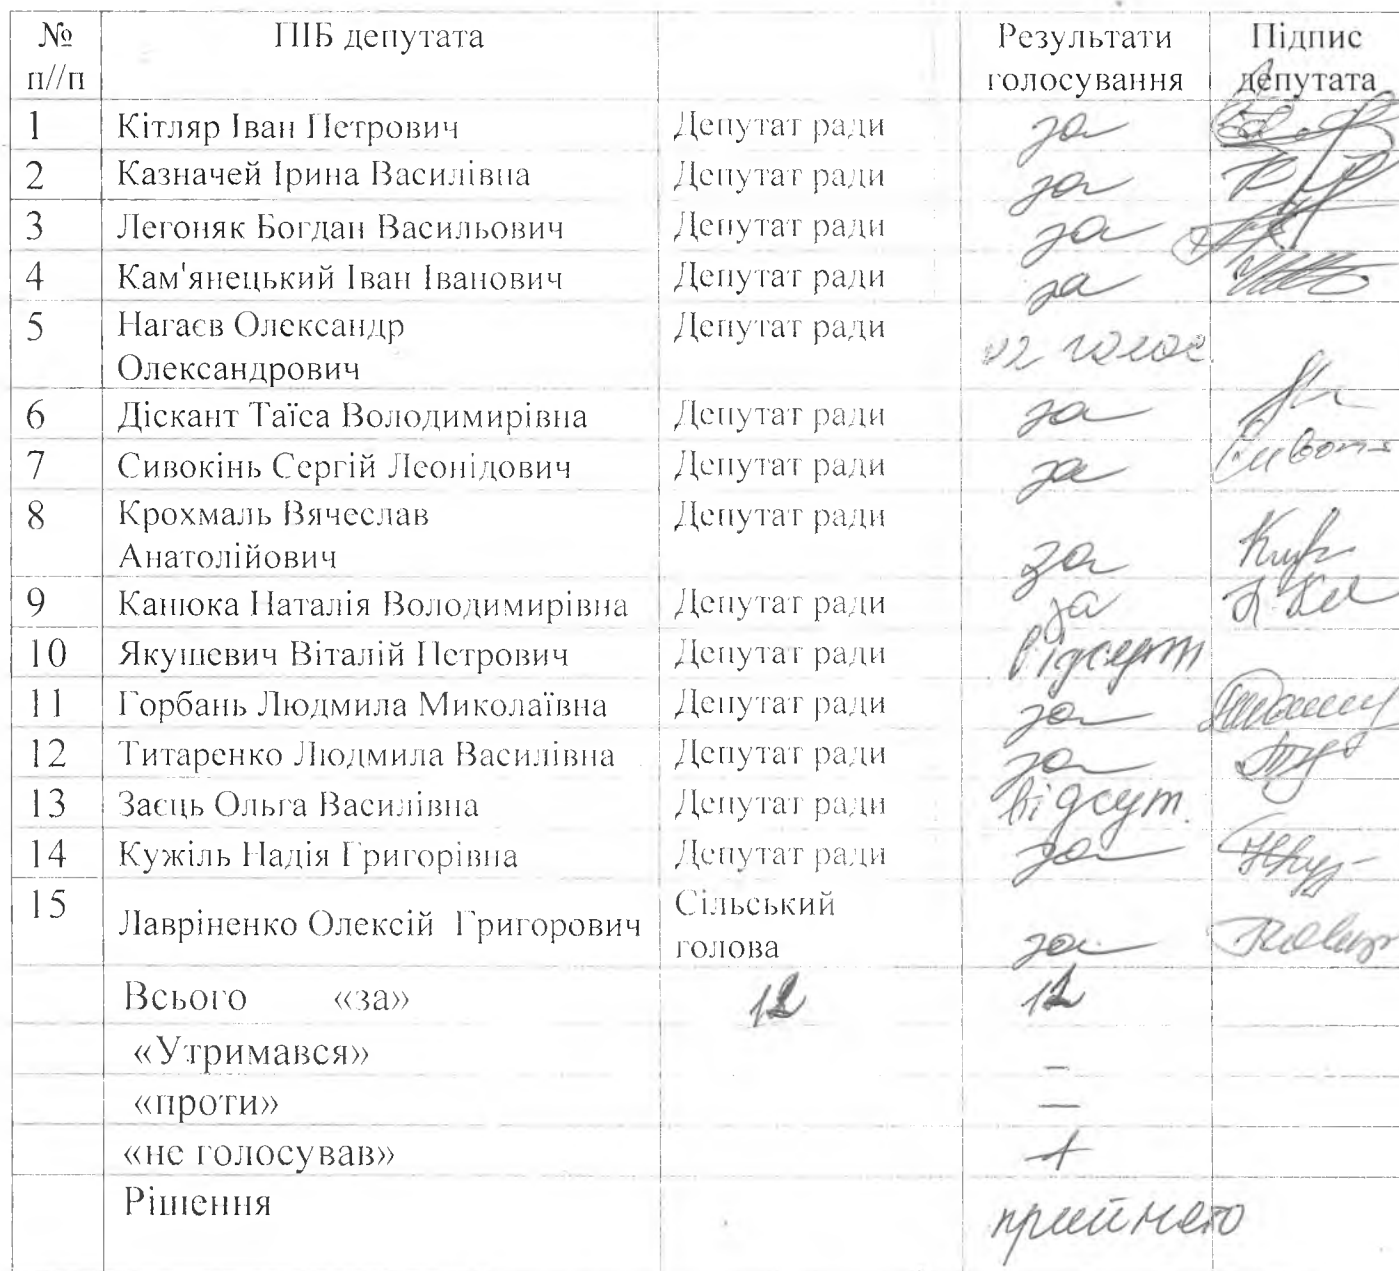 № ПІБ депутата Результати Підпис
п//п голосування депутата
1 Кітляр Іван Петрович Депутат ради за
2 Казначей Ірина Василівна Депутат ради за
3 Легоняк Богдан Васильович Депутат ради за
4 Кам'янецький Іван Іванович Депутат ради за
5 Нагаєв Олександр Депутат ради не голос.
Олександрович
6 Діскант Таїса Володимирівна Депутат ради за
7 Сивокінь Сергій Леонідович Депутат ради за
8 Крохмаль Вячеслав Депутат ради
Анатолійович за
9 Канюка Наталія Володимирівна Депутат ради за
10 Якушевич Віталій Петрович Депутат ради
11 Горбань Людмила Миколаївна Депутат ради за
12 Титаренко Людмила Василівна Депутат ради за
13 Заєць Ольга Василівна Депутат ради відсут.
14 Кужіль Надія Григорівна Депутат ради за
15 Лавріненко Олексій Григорович Сільський
голова за
Всього «за» 12 12
«Утримався» –
«проти» —
«не голосував» 1
Рішення прийнято